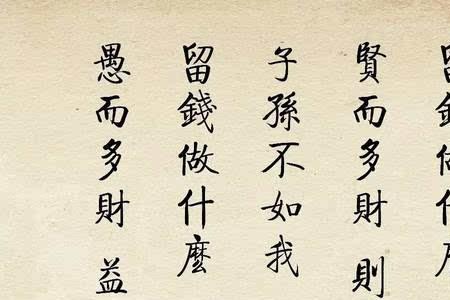 賢而多財則
子孫不如我
留錢做什麼
愚而多財益